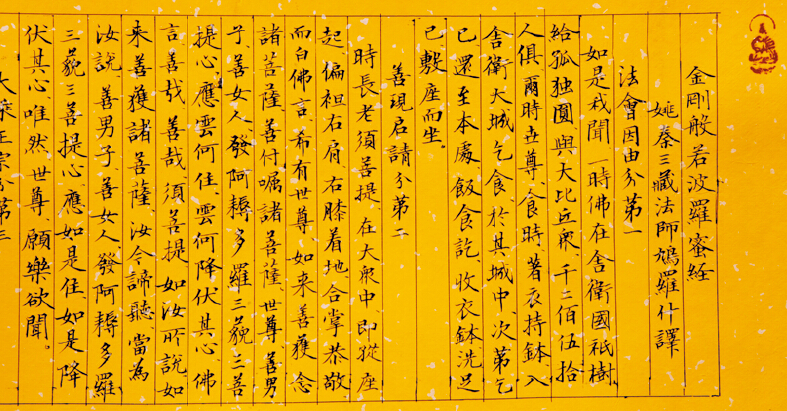 金剛般若波羅蜜経
姚秦三藏法師鳩羅什譯
法會因由分第一
如是我聞、一時佛在舍衛國祇樹
給孤独園、與大比丘衆、千二佰伍拾
人俱、爾時世尊、食時、著衣持鉢、入
舍衛大城乞食、於其城中、次第乞
已、還至本處、飯食訖、收衣鉢、洗足
已、敷座而坐。
善現启請分第二
時長老須菩提、在大衆中、即從座
起、偏袒右肩、右膝着地、合掌恭敬、
而白佛言、希有世尊、如来善獲念
諸菩薩、善付嘱諸菩薩、世尊、善男
子、善女人、發阿耨多羅三藐三菩
提心、應雲何住、雲何降伏其心、佛
言、善哉、善哉、須菩提、如汝所說、如
来善獲諸菩薩、汝今諦聽、當為
汝說、善男子、善女人、發阿耨多羅
三藐三菩提心、應如是住、如是降
伏其心、唯然、世尊、願樂欲聞。
大乘正宗分第三